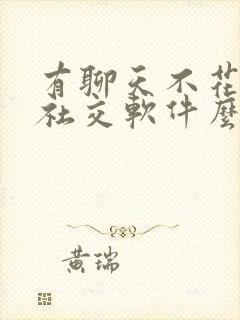 有聊天不花
社交軟件麼
黄瑞